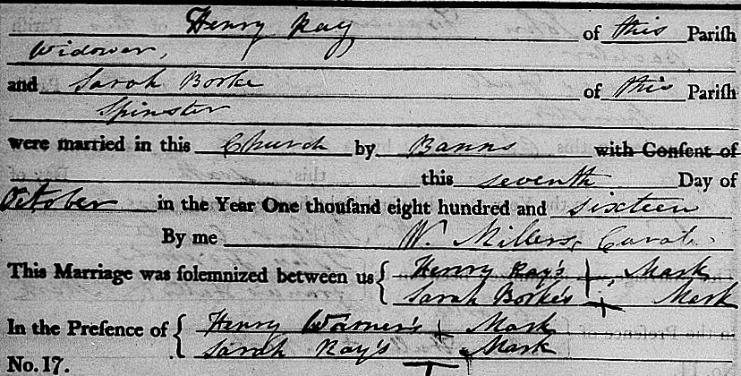 Henry Ray of this Pariſh
Widower,
and Sarah Borke of this Pariſh
Spinster
were married in this Church by Banns with Conſent of
this seventh Day of
October in the Year One thouſand eight hundred and sixteen
By me W. Millers, Curate
This Marriage was ſolemnized between us { Henry Ray's + Mark
Sarah Borke's + Mark
In the Preſence of { Henry Warner's + Mark
Sarah Ray's + Mark
No. 17.